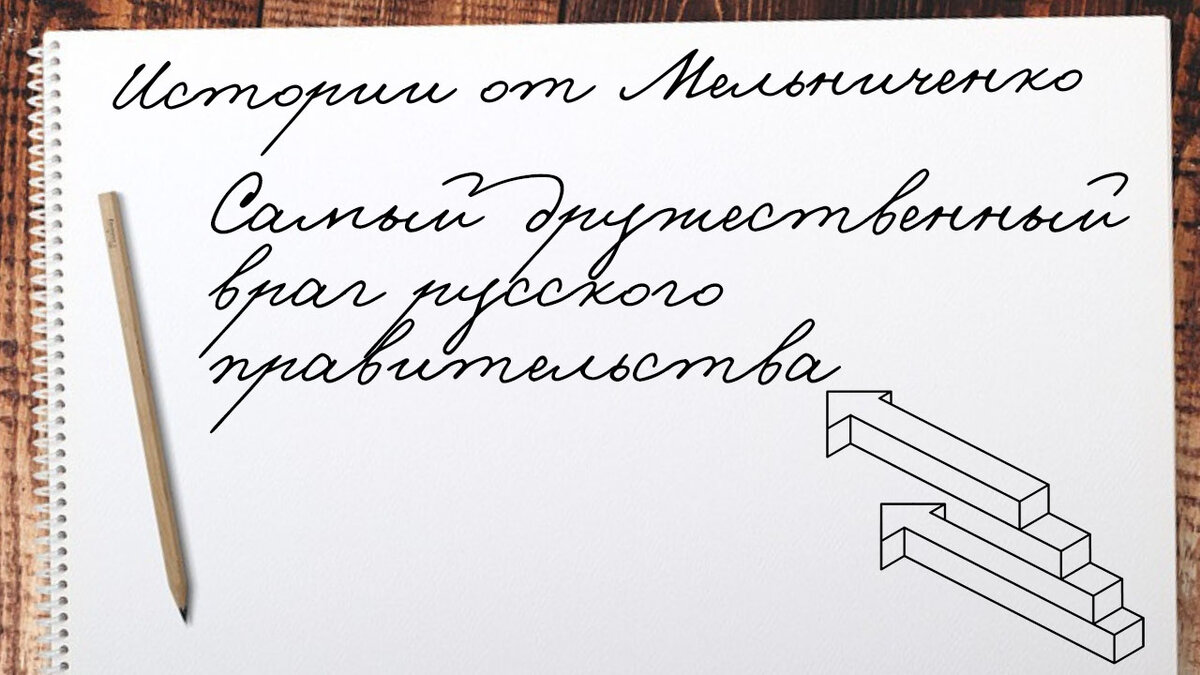 Истории от Мельниченко
Самый дружественный
враг русского
правительства